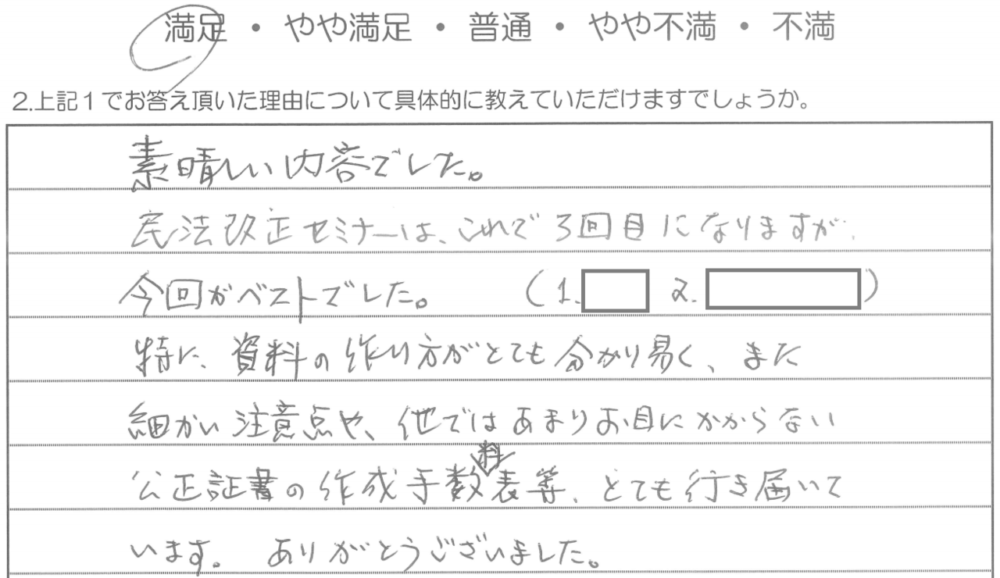 満足 ・ やや満足 ・ 普通 ・ やや不満 ・ 不満
2.上記1でお答え頂いた理由について具体的に教えていただけますでしょうか。
素晴しい内容でした。
民法改正セミナーは、これで3回目になりますが、
今回がベストでした。 (1. 2. )
特に、資料の作り方がとても分かり易く、また
細かい注意点や、他ではあまりお目にかからない
公正証書の作成手数料表等、とても行き届いて
います。 ありがとうございました。